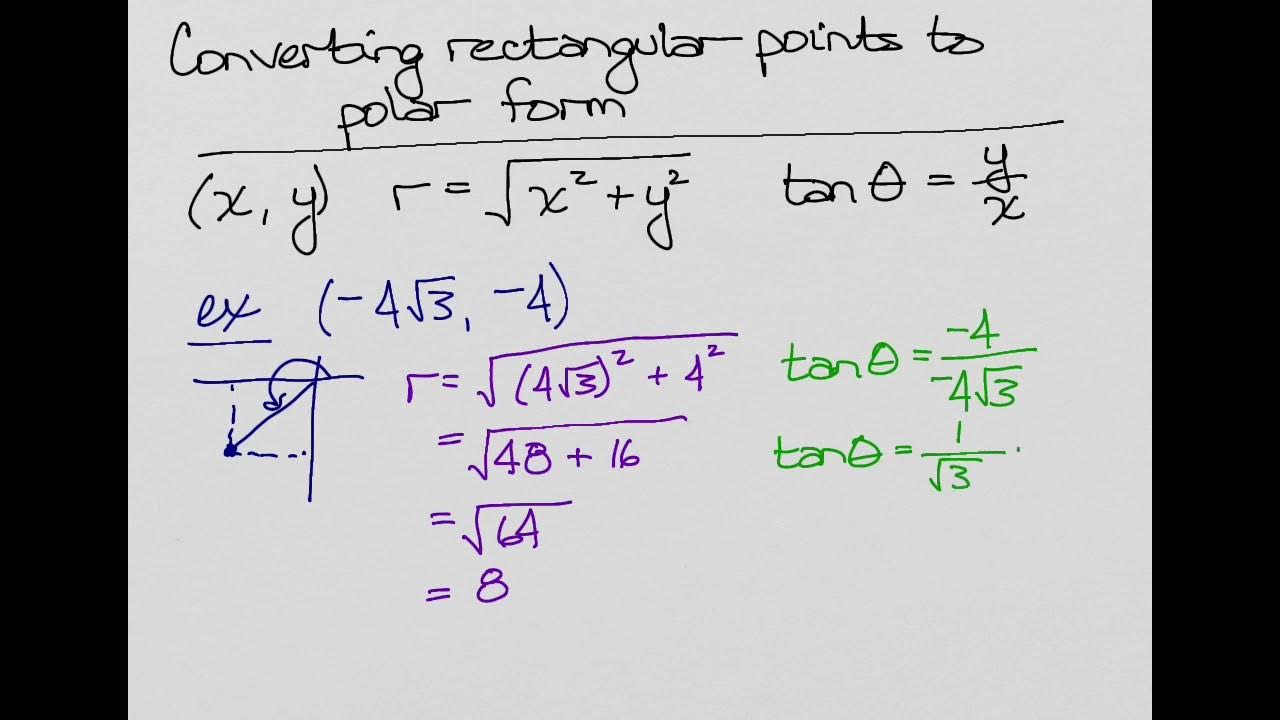 Converting rectangular points to
polar form
(x, y) r = √(x² + y²) tan θ = y/x
ex (-4√3, -4)
r = √((4√3)² + 4²) tan θ = -4/-4√3
= √(48 + 16) tan θ = 1/√3
= √64
= 8